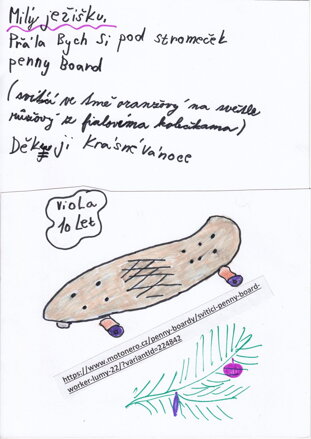 Milý ježíšku,
Přála Bych Si pod stromeček
penny Board
(svítící ve tmě oranžový na světle
růžový z fialovíma kolečkama)
Děkuji Krásné Vánoce
Viola
10 Let
https://www.motonero.cz/penny-boardy/svitici-penny-board-
worker-lumy-22/?variantId=224842